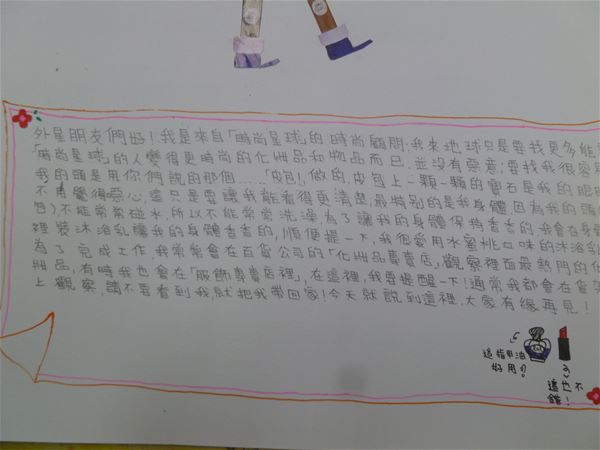 外星朋友們好!我是來自「時尚星球」的時尚顧問,我來地球只是要找更多能
「時尚星球」的人變得更時尚的化妝品和物品而已.並沒有惡意,要找我很容易
我的頭是用你們說的那個……「皮包」做的,皮包上一顆一顆的寶石是我的眼
不用覺得噁心,這只是要讓我能看得更清楚.最特別的是我身體,因為我的頭
包),不能常常碰水,所以不能常常洗澡,為了讓我的身體保持香香的,我會在身
裡裝沐浴乳讓我的身體香香的,順便提一下,我很愛用水蜜桃口味的沐浴乳
為了完成工作,我常常會在百貨公司的「化妝品專賣店」觀察裡面最熱門的化
妝品,有時我也會在「服飾專賣店裡」,在這裡,我要提醒一下!通常我都會在
上觀察,請不要看到我,就把我帶回家!今天就說到這裡.大家有緣再見!
這指甲油
好用!
這也不
錯!